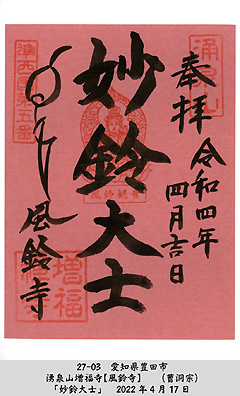 奉拝
令和四年
四月吉日
妙鈴大士
風鈴寺
湧泉山
準西国第五番
風鈴観音
増福
27-03 愛知県豊田市
湧泉山増福寺[風鈴寺] (曹洞宗)
「妙鈴大士」 2022年4月17日